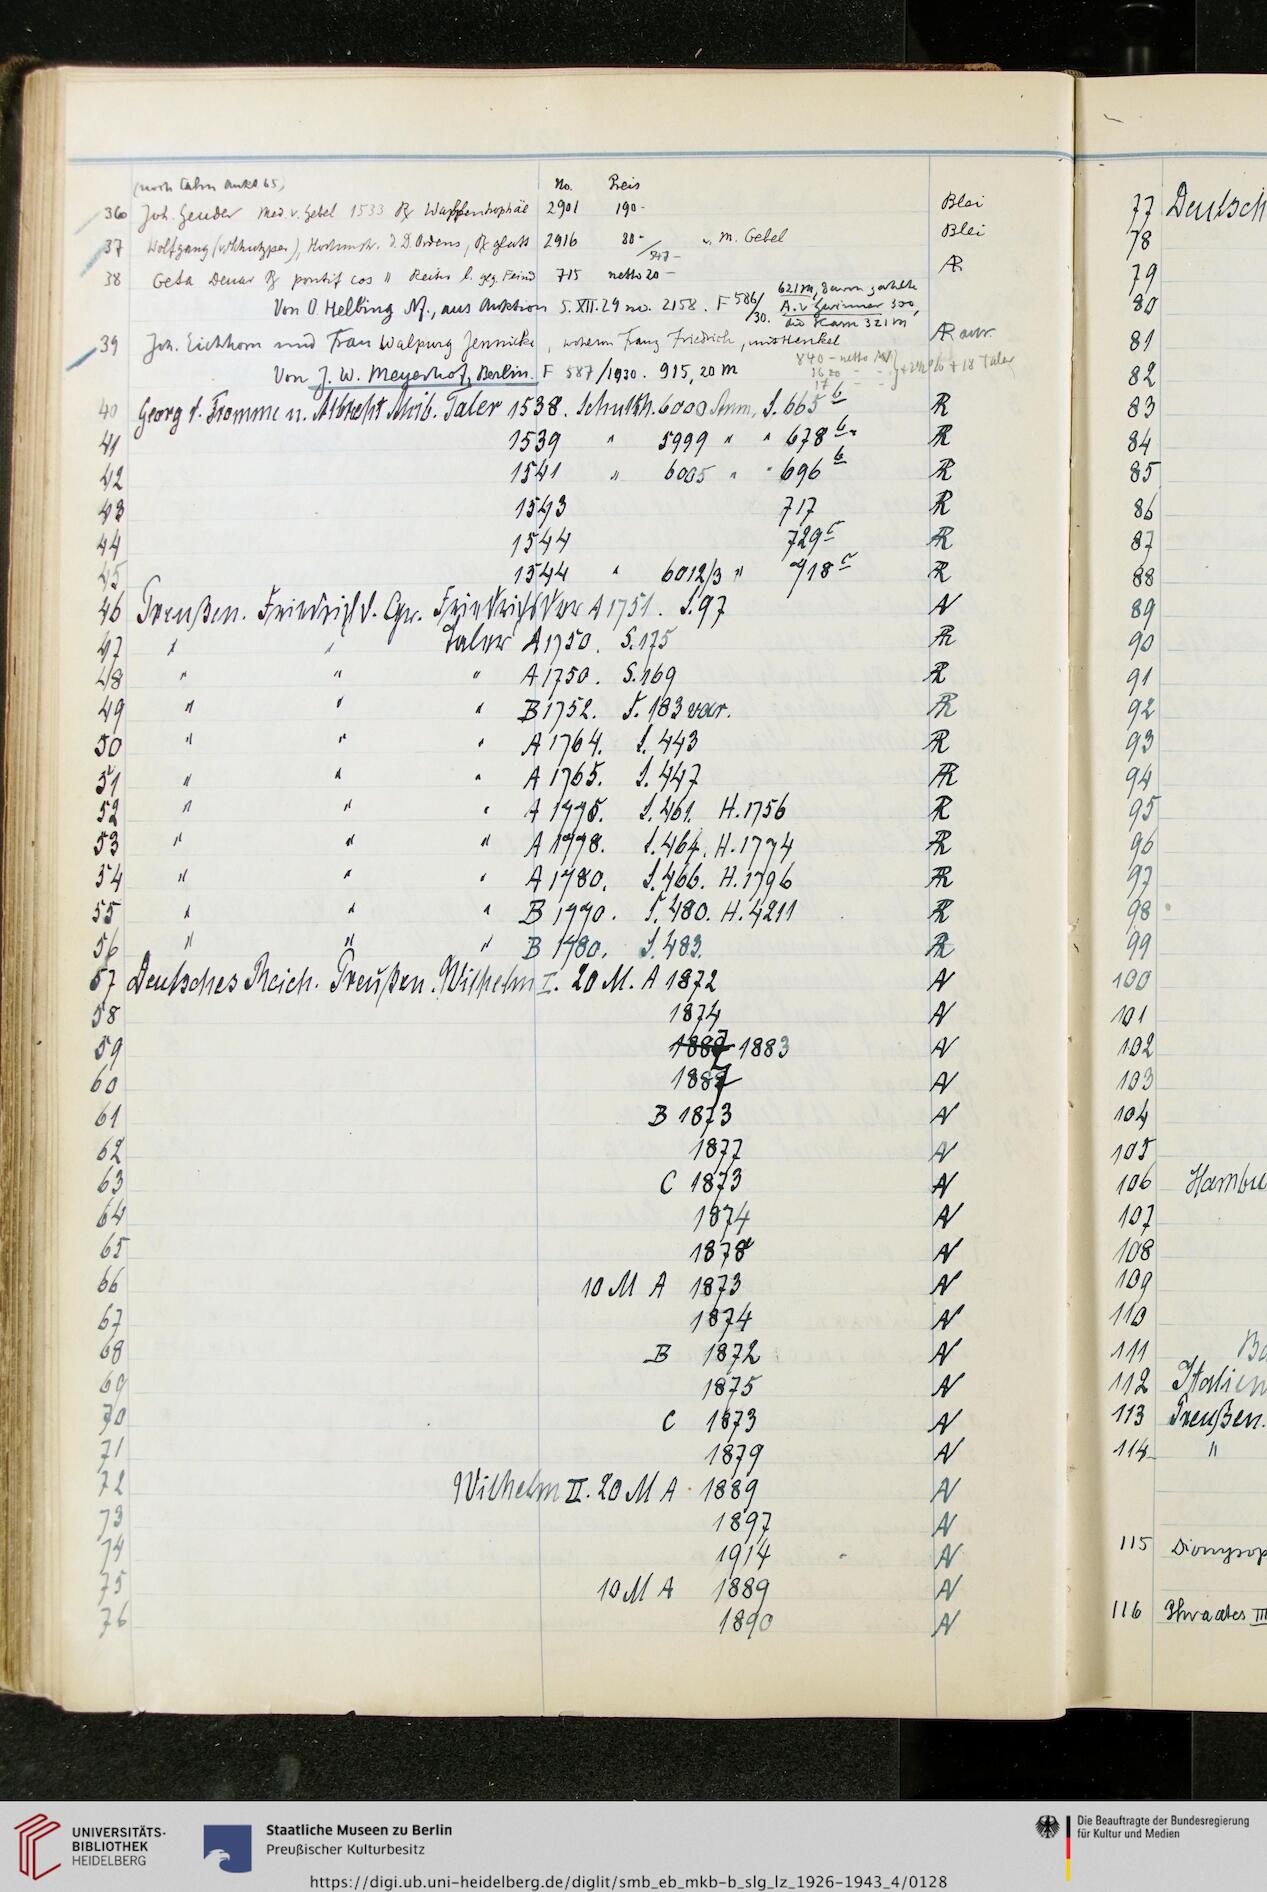 No. Preis
36 Joh. Geuder Med. v. Gebel 1533 2901 190- Blei
37 Wolfgang 2916 80- m. Gebel Blei
38 Geta Denar pontif cos II 715 netto 20- AR
621 M, davon zahlte
Von O. Helbing Nf., aus Auktion 5. XII. 29 no. 2158. F 586/30. A. v. Gwinner 300,
die Kasse 321 M
39 Joh. Eichhorn und Frau Walpurg Jennicke, Franz Friedrich, mit Henkel AR
Von J. W. Meyerhof, Berlin. F 587/1930. 915,20 M
40 Georg d. Fromme u. Albrecht Alcib. Taler 1538. Schulth. 6000 Anm, S. 665 b AR
41 1539 " 5999 " " 678 b AR
42 1541 " 6005 " " 696 b AR
43 1543 717 AR
44 1544 729 c AR
45 1544 " 6012/3 " 718 c AR
46 Preußen. Friedrich d. Gr. Friedrichsdor A 1751. S. 97 AV
47 " " Taler A 1750. S. 175 AR
48 " " " A 1750. S. 169 AR
49 " " " B 1752. S. 183 var. AR
50 " " " A 1764. S. 443 AR
51 " " " A 1765. S. 447 AR
52 " " " A 1775. S. 461. H. 1756 AR
53 " " " A 1778. S. 464. H. 1774 AR
54 " " " A 1780. S. 466. H. 1796 AR
55 " " " B 1770. S. 480. H. 4211 AR
56 " " " B 1780. S. 483. AR
57 Deutsches Reich. Preußen. Wilhelm I. 20 M. A 1872 AV
58 1874 AV
59 1883 AV
60 1887 AV
61 B 1873 AV
62 1877 AV
63 C 1873 AV
64 1874 AV
65 1878 AV
66 10 M A 1873 AV
67 1874 AV
68 B 1872 AV
69 1875 AV
70 C 1873 AV
71 1879 AV
72 Wilhelm II. 20 M A 1889 AV
73 1897 AV
74 1914 AV
75 10 M A 1889 AV
76 1890 AV
77 Deutsch
78
79
80
81
82
83
84
85
86
87
88
89
90
91
92
93
94
95
96
97
98
99
100
101
102
103
104
105
106 Hambu
107
108
109
110
111 Ba
112 Italien
113 Preußen.
114 "
115 Dionysop
116 Phraates III
UNIVERSITÄTS-
BIBLIOTHEK
HEIDELBERG
Staatliche Museen zu Berlin
Preußischer Kulturbesitz
Die Beauftragte der Bundesregierung
für Kultur und Medien
https://digi.ub.uni-heidelberg.de/diglit/smb_eb_mkb-b_slg_lz_1926-1943_4/0128